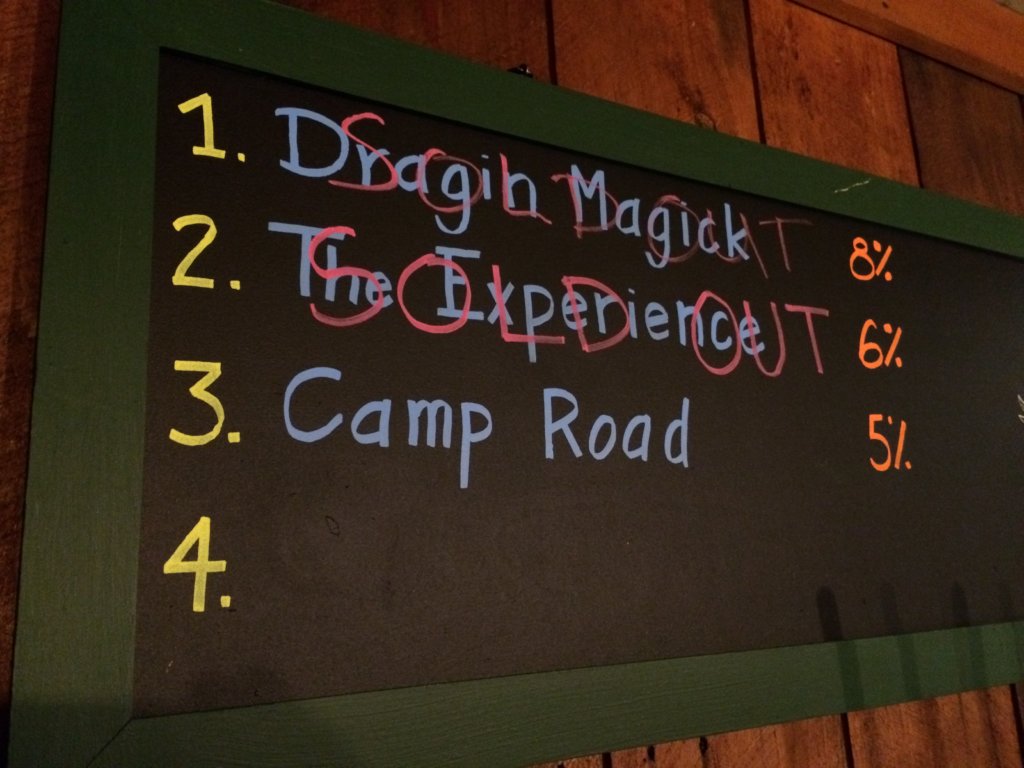 1. Dragin Magick 8%
SOLD OUT
2. The Experience 6%
SOLD OUT
3. Camp Road 5%
4.